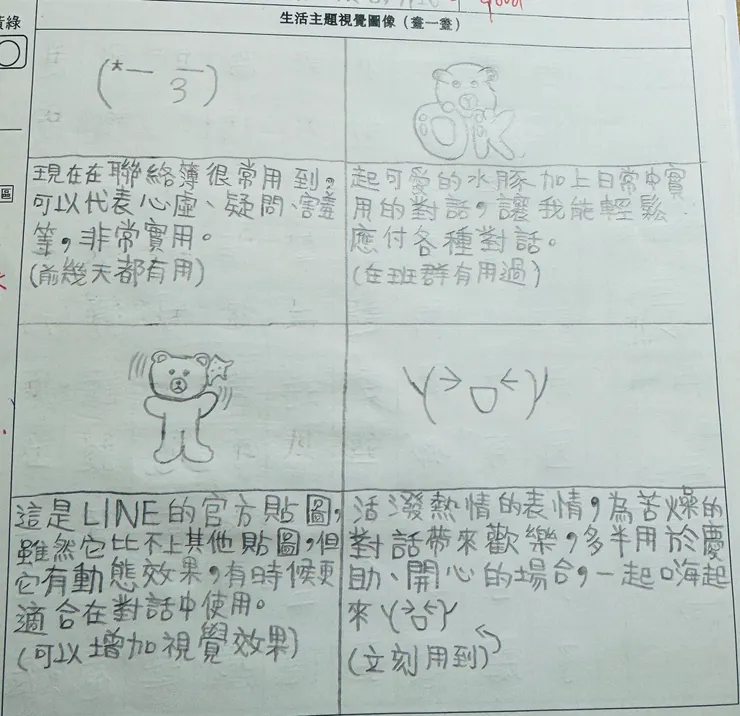 good
生活主題視覺圖像（畫一畫）
黃綠
區
(*一 3)
OK
現在在聯絡簿很常用到，
可以代表心虛、疑問、害羞
等，非常實用。
(前幾天都有用)
起可愛的水豚加上日常中實
用的對話，讓我能輕鬆
應付各種對話。
(在班群有用過)
\(> ㅁ <)/
這是LINE的官方貼圖，
雖然它比不上其他貼圖，但
它有動態效果，有時候更
適合在對話中使用。
(可以增加視覺效果)
活潑熱情的表情，為苦燥的
對話帶來歡樂，多半用於慶
助、開心的場合，一起嗨起
來\(>ㅁ<)/
(立刻用到)